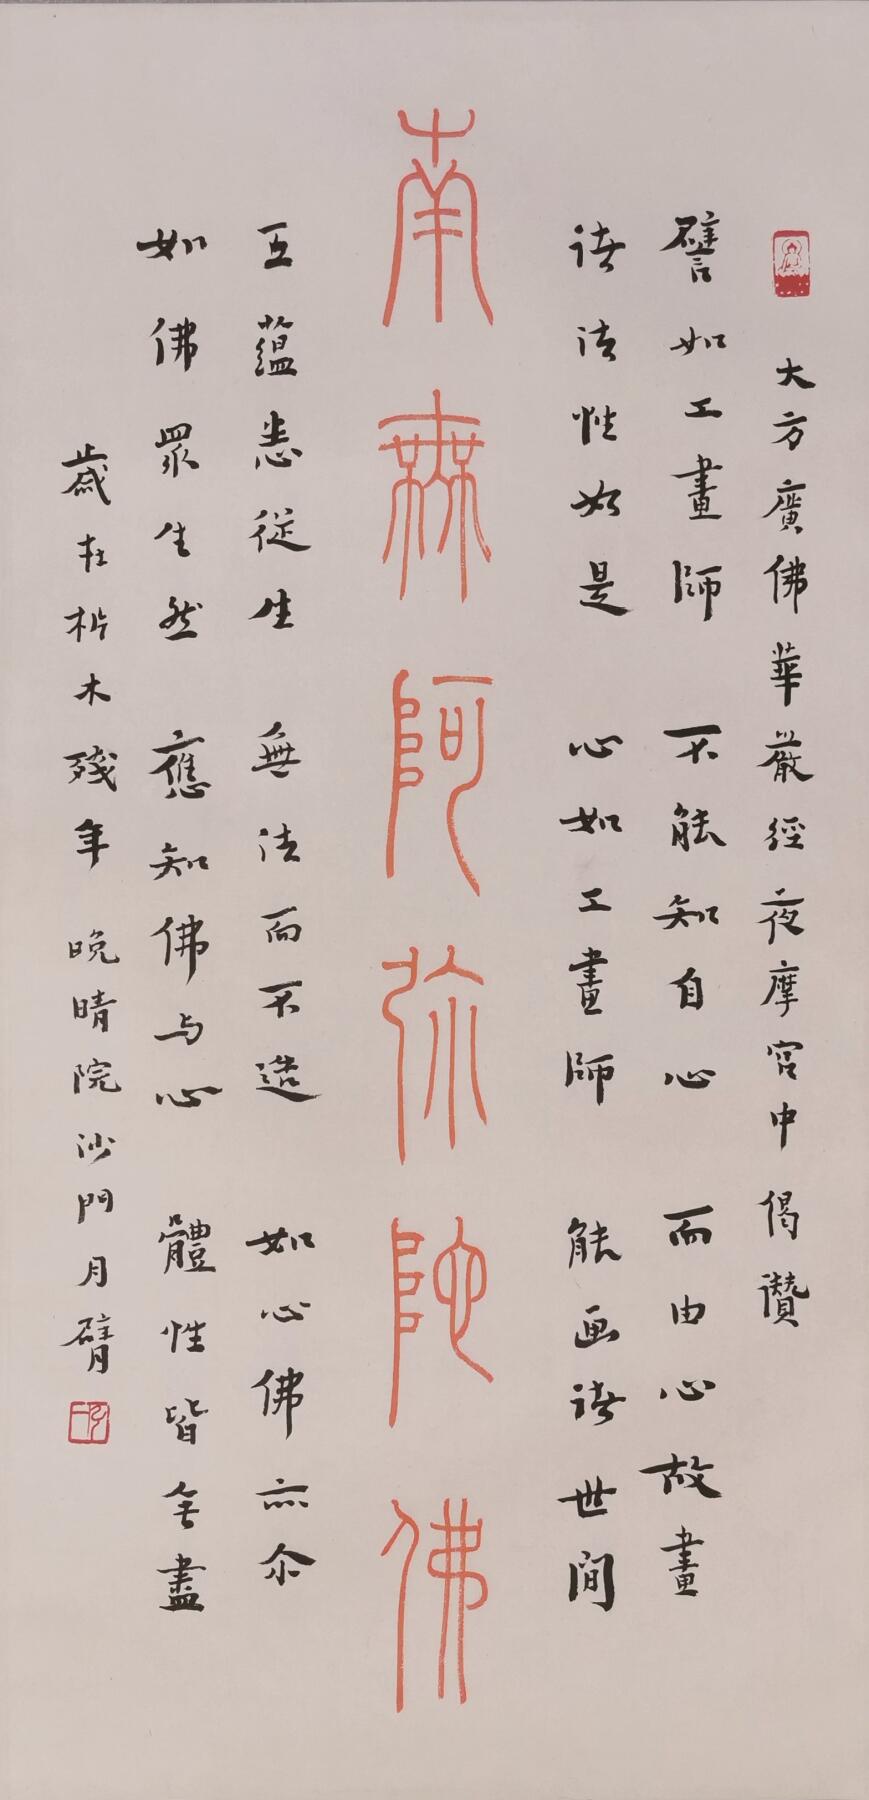 大方廣佛華嚴經夜摩宮中偈讚
譬如工畫師 不能知自心 而由心故畫
諸法性如是 心如工畫師 能画諸世間
南無阿弥陀佛
五蘊悉從生 無法而不造 如心佛亦尔
如佛眾生然 應知佛与心 體性皆無盡
歲在析木殘年 晚晴院沙門月臂